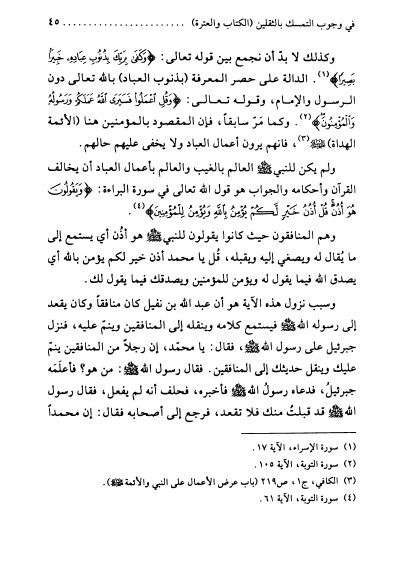 في وجوب التمسك بالثقلين (الكتاب والعترة) ........................ ٤٥
وكذلك لا بدّ أن نجمع بين قوله تعالى: ﴿وَكَفَىٰ بِرَبِّكَ بِذُنُوبِ عِبَادِهِ خَبِيرًا
بَصِيرًا﴾(١). الدالة على حصر المعرفة (بذنوب العباد) بالله تعالى دون
الرسول والإمام، وقوله تعالى: ﴿وَقُلِ اعْمَلُوا فَسَيَرَى اللَّهُ عَمَلَكُمْ وَرَسُولُهُ
وَالْمُؤْمِنُونَ﴾(٢). وكما مَرّ سابقاً، فإن المقصود بالمؤمنين هنا (الأئمة
الهداة) (٣)، فانهم يرون أعمال العباد ولا يخفى عليهم حالهم.
ولم يكن للنبي ﷺ العالم بالغيب والعالم بأعمال العباد أن يخالف
القرآن وأحكامه والجواب هو قول الله تعالى في سورة البراءة: ﴿وَيَقُولُونَ
هُوَ أُذُنٌ قُلْ أُذُنُ خَيْرٍ لَكُمْ يُؤْمِنُ بِاللَّهِ وَيُؤْمِنُ لِلْمُؤْمِنِينَ﴾(٤).
وهم المنافقون حيث كانوا يقولون للنبي ﷺ هو أذُن أي يستمع إلى
ما يُقال له ويصغي إليه ويقبله، قُل يا محمد أذن خير لكم يؤمن بالله أي
يصدق الله فيما يقول له ويؤمن للمؤمنين ويصدقك فيما يقول لك.
وسبب نزول هذه الآية هو أن عبد الله بن نفيل كان منافقاً وكان يقعد
إلى رسوله الله ﷺ فيستمع كلامه وينقله إلى المنافقين وينمّ عليه، فنزل
جبرئيل على رسول الله ﷺ، فقال: يا محمّد، إن رجلاً من المنافقين ينمّ
عليك وينقل حديثك إلى المنافقين. فقال رسول الله ﷺ: من هو؟ فأعلَمَه
جبرئيلُ، فدعاه رسولُ الله ﷺ فأخبره، فحلف أنه لم يفعل، فقال رسول
الله ﷺ قد قبلتُ منك فلا تقعد، فرجع إلى أصحابه فقال: إن محمداً
(١) سورة الإسراء، الآية ١٧.
(٢) سورة التوبة، الآية ١٠٥.
(٣) الكافي، ج١، ص٢١٩ (باب عرض الأعمال على النبي والأئمة ﷺ).
(٤) سورة التوبة، الآية ٦١.